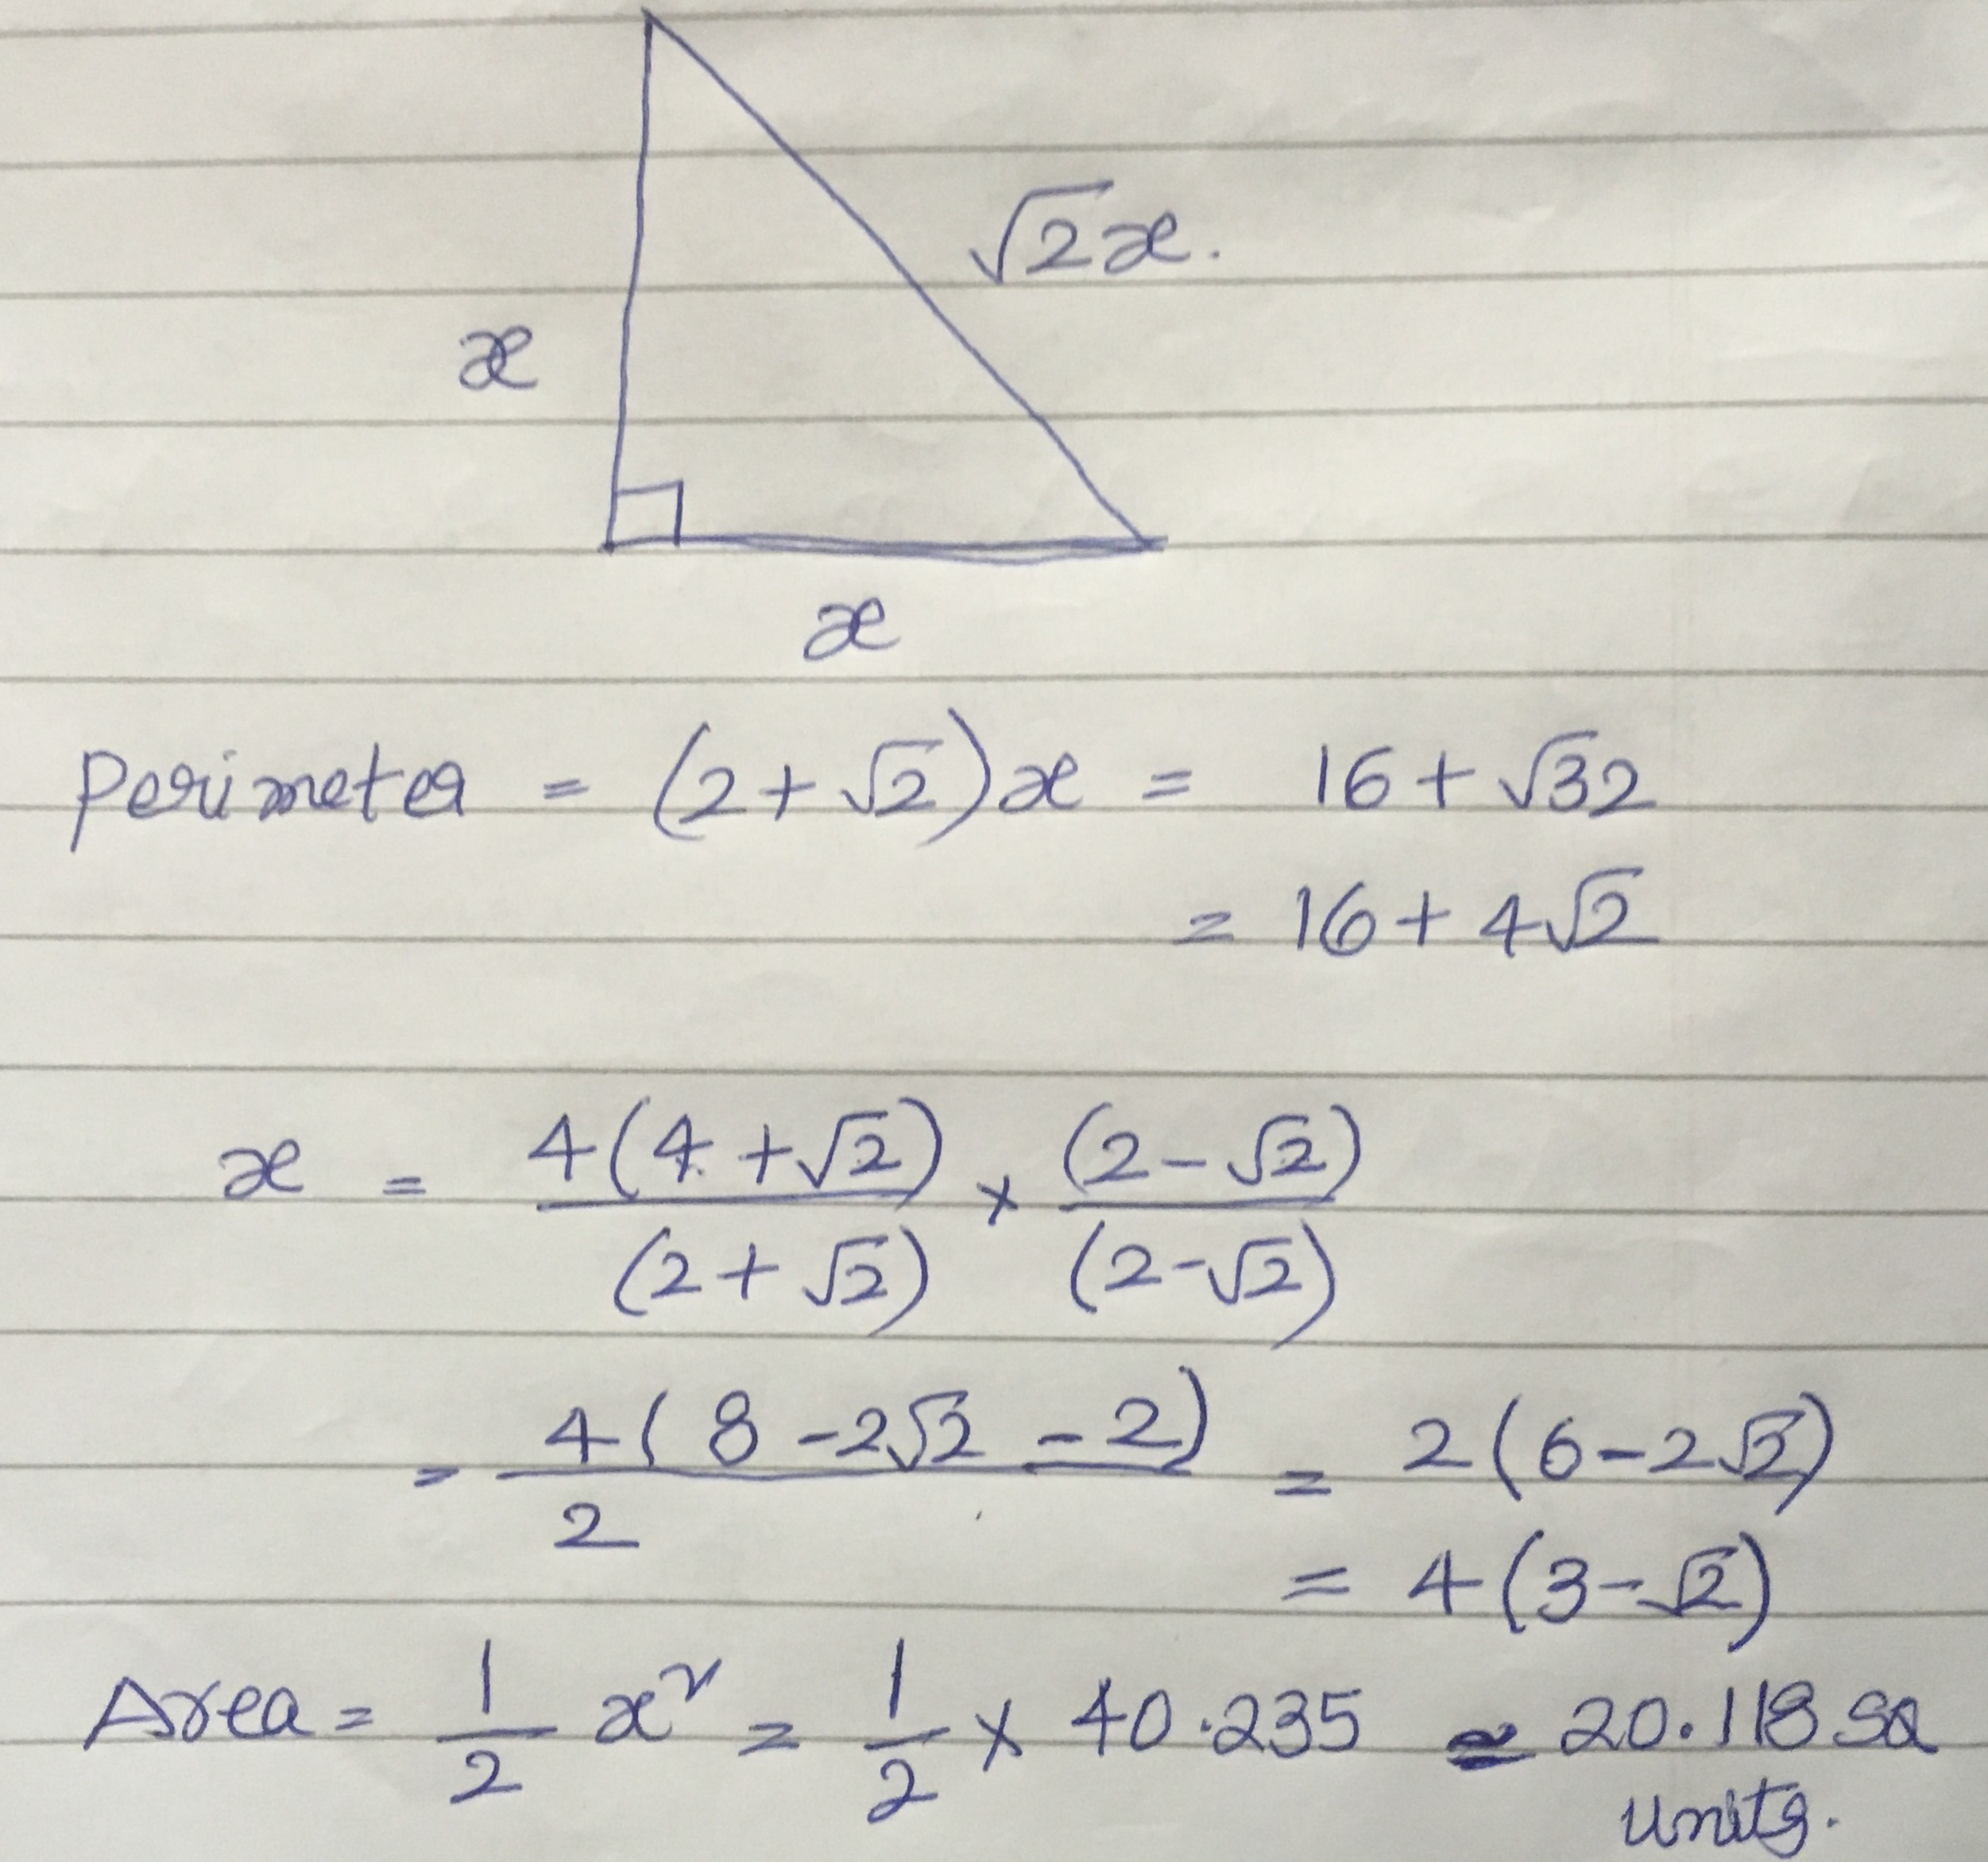 √2x.
x
x
Perimeter = (2 + √2)x = 16 + √32
= 16 + 4√2
x = 4(4 + √2)/(2 + √2) × (2 - √2)/(2 - √2)
= 4(8 - 2√2 - 2)/2 = 2(6 - 2√2)
= 4(3 - √2)
Area = 1/2 x² = 1/2 × 40.235 ≃ 20.118 SQ
Units.